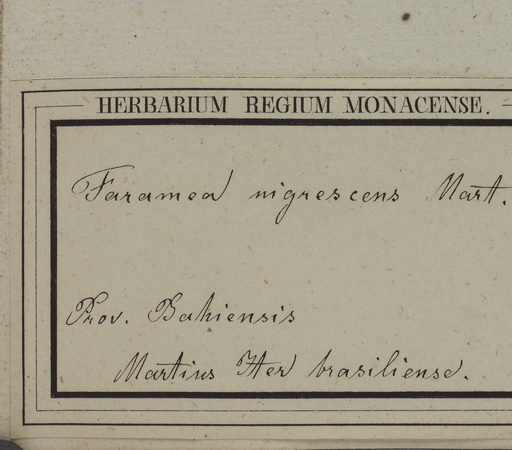 HERBARIUM REGIUM MONACENSE.
Faramea nigrescens Mart.
Prov. Bahiensis
Martius Iter brasiliense.